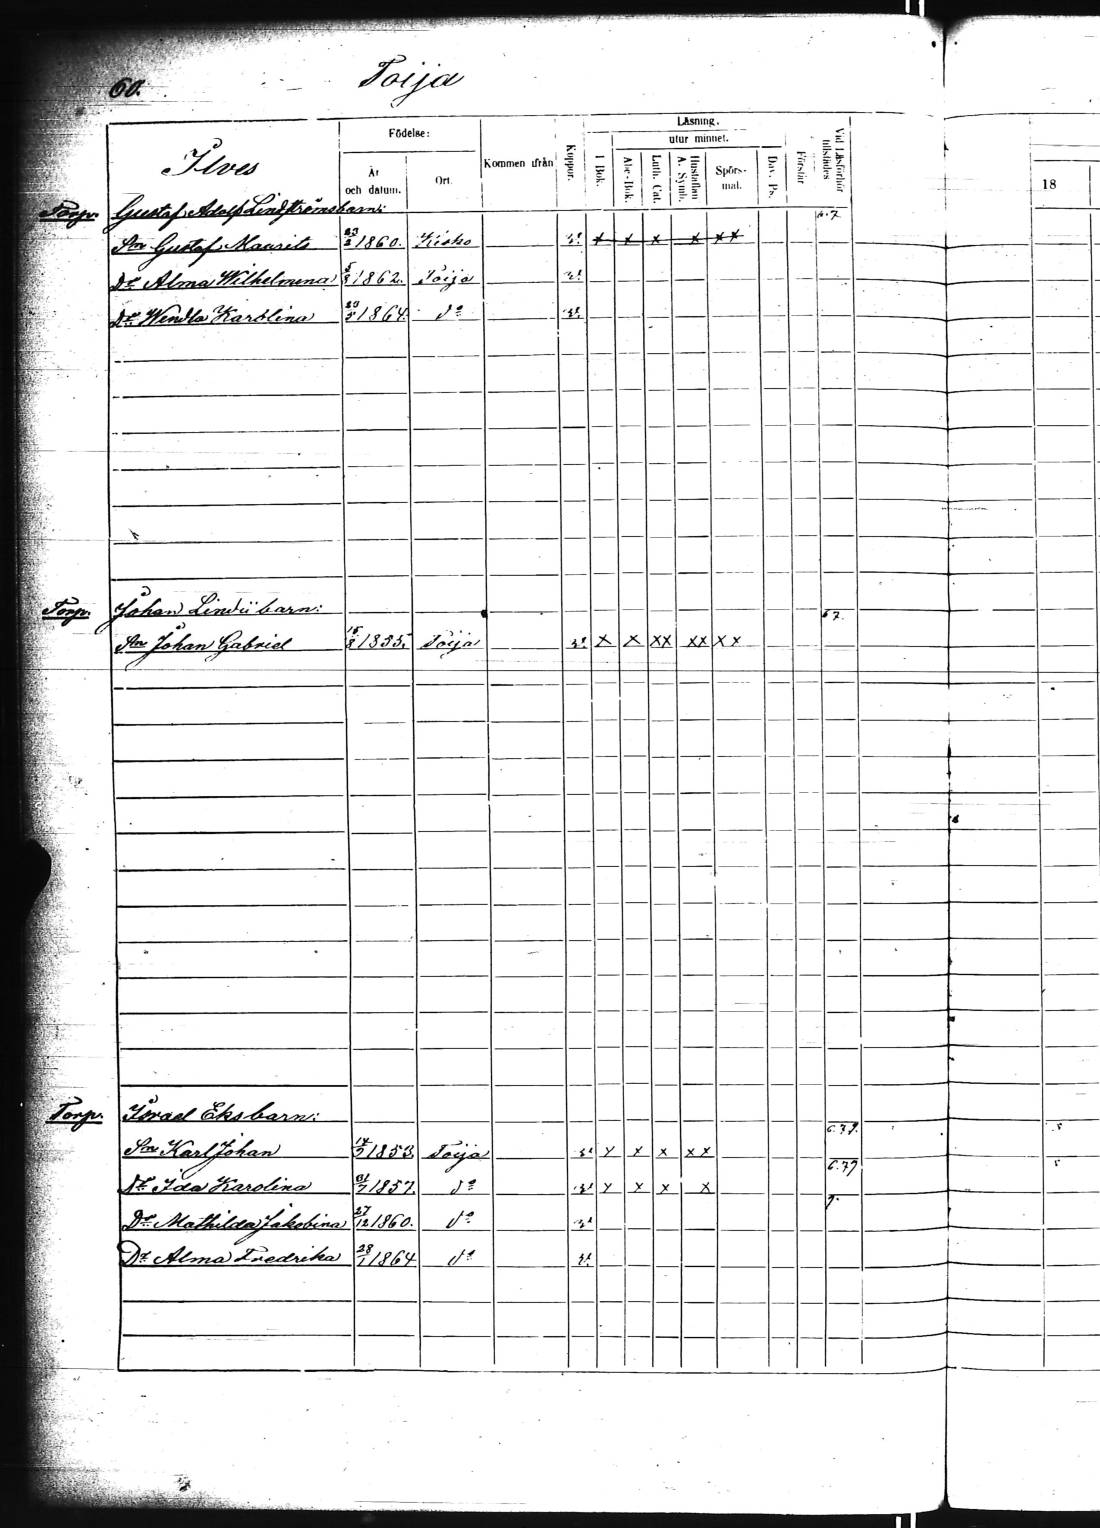 60.
Toija
Läsning.
Födelse:
utur minnet.
Ilves
Kommen ifrån
Koppor.
I Bok.
Abc-Bok.
Luth. Cat.
Hustaflan A. Symb.
Spörs-mål.
Dav. Ps.
Förstår
Vid Läsförhör tillstädes
År och datum.
Ort.
18
Torp. Gustaf Adolf Lindströms barn: 6.7
Son Gustaf Maurits 1860. Kisko x x x x xx
Dr Alma Wilhelmina 5/8 1862. Toija
Dr Wendla Karolina 1864. do
Torp. Johan Lindii barn: 67.
Son Johan Gabriel 1855. Toija x x xx xx xx
Torp. Israel Eks barn:
6.7.8.
Son Karl Johan 1853 Toija x x x xx
6.79
Dr Ida Karolina 31/7 1857. do x x x x
Dr Mathilda Jakobina 27/12 1860. do
Dr Alma Fredrika 28/1 1864 do